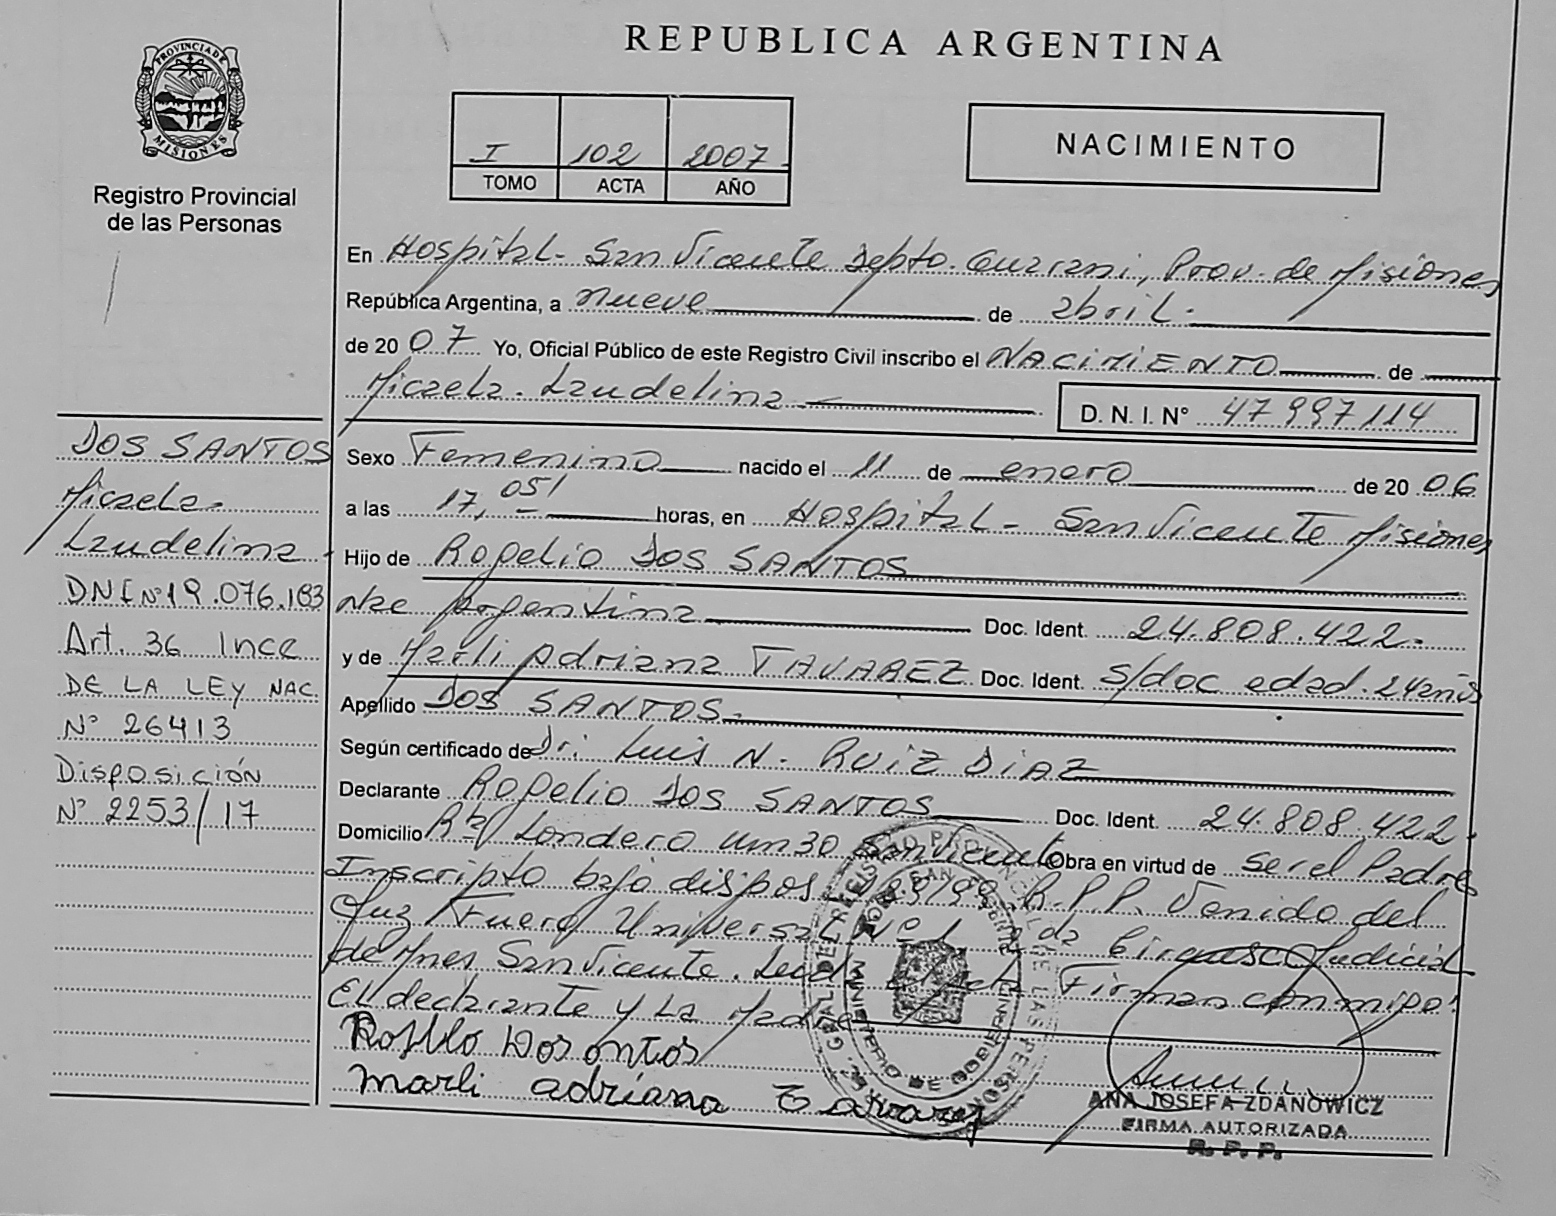 PROVINCIA DE
MISIONES
Registro Provincial
de las Personas
REPUBLICA ARGENTINA
I 102 2007
TOMO ACTA AÑO
NACIMIENTO
En Hospital - San Vicente Depto. Guarani, Prov. de Misiones
República Argentina, a nueve de abril.
de 20 07 Yo, Oficial Público de este Registro Civil inscribo el NACIMIENTO de
Micaela. Laudelina
D. N. I. N° 47997114
Sexo Femenino nacido el 11 de enero de 20 06
a las 17,05' horas, en Hospital - San Vicente Misiones
Hijo de Rogelio DOS SANTOS
Nac Argentina Doc. Ident. 24.808.422.
y de Marli Adriana TAVAREZ Doc. Ident. s/doc edad. 24 años
Apellido DOS SANTOS.
Según certificado de Dr. Luis N. RUIZ DIAZ
Declarante Rogelio DOS SANTOS Doc. Ident. 24.808.422.
Domicilio Londero Km 30 San Vicente Obra en virtud de ser el Padre
Inscripto bajo dispos. R.P.P. Venido del
Juz Fuero Universal Nº 1 2da Judicial
de Mnes San Vicente. Firman conmigo:
El declarante y La Madre
Marli adriana Tavarez
ANA JOSEFA ZDANOWICZ
FIRMA AUTORIZADA
R. P. P.
DOS SANTOS
Micaela.
Laudelina.
DNI Nº 19.076.183
Art. 36 Inc c
DE LA LEY NAC.
Nº 26413
Disposición
Nº 2253/17